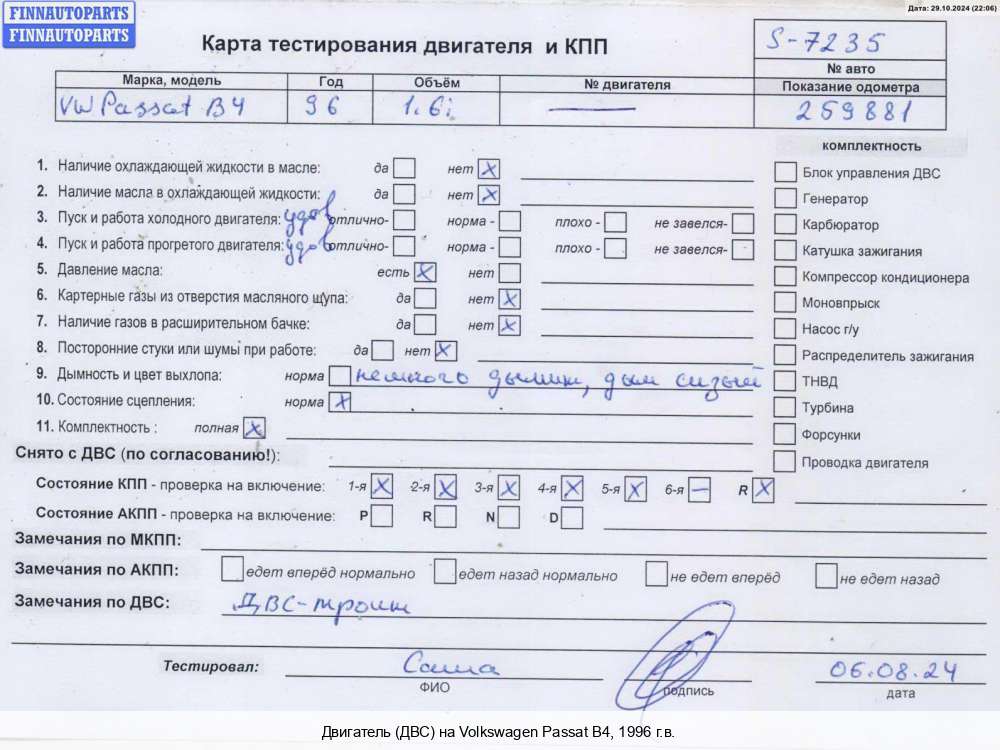 FINNAUTOPARTS
FINNAUTOPARTS
Дата: 29.10.2024 (22:06)
Карта тестирования двигателя и КПП
S-7235
№ авто
Марка, модель Год Объём № двигателя Показание одометра
VW Passat B4 96 1.6i — 259881
комплектность
1. Наличие охлаждающей жидкости в масле: да нет X
2. Наличие масла в охлаждающей жидкости: да нет X
3. Пуск и работа холодного двигателя: удов отлично- норма - плохо - не завелся-
4. Пуск и работа прогретого двигателя: удов отлично- норма - плохо - не завелся-
5. Давление масла: есть X нет
6. Картерные газы из отверстия масляного щупа: да нет X
7. Наличие газов в расширительном бачке: да нет X
8. Посторонние стуки или шумы при работе: да нет X
9. Дымность и цвет выхлопа: норма немного дымит, дым сизый
10. Состояние сцепления: норма X
11. Комплектность : полная X
Блок управления ДВС
Генератор
Карбюратор
Катушка зажигания
Компрессор кондиционера
Моновпрыск
Насос г/у
Распределитель зажигания
ТНВД
Турбина
Форсунки
Проводка двигателя
Снято с ДВС (по согласованию!):
Состояние КПП - проверка на включение: 1-я X 2-я X 3-я X 4-я X 5-я X 6-я — R X
Состояние АКПП - проверка на включение: P R N D
Замечания по МКПП:
Замечания по АКПП: едет вперёд нормально едет назад нормально не едет вперёд не едет назад
Замечания по ДВС: ДВС-троит
Тестировал: Саша 06.08.24
ФИО подпись дата
Двигатель (ДВС) на Volkswagen Passat B4, 1996 г.в.